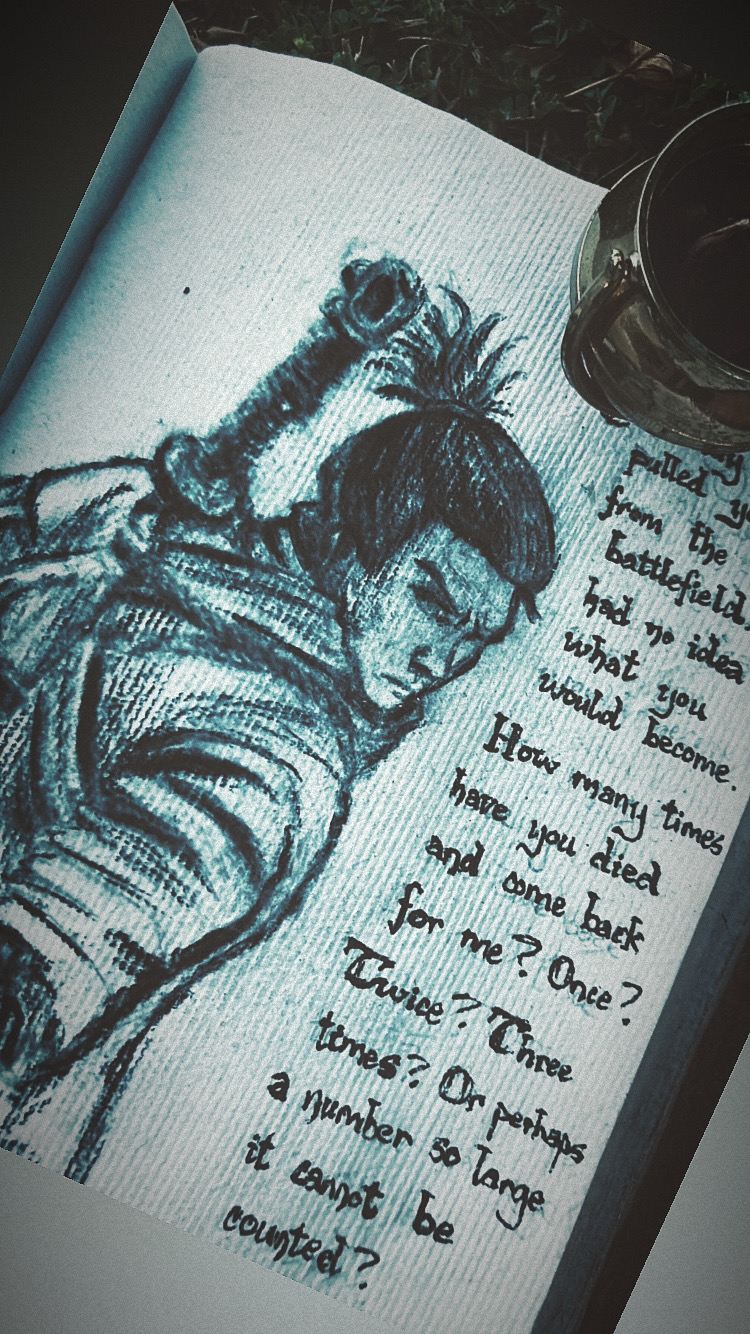 pulled
from the
battlefield
had no idea
what you
would become.
How many times
have you died
and come back
for me? Once?
Twice? Three
times? Or perhaps
a number so large
it cannot be
counted?